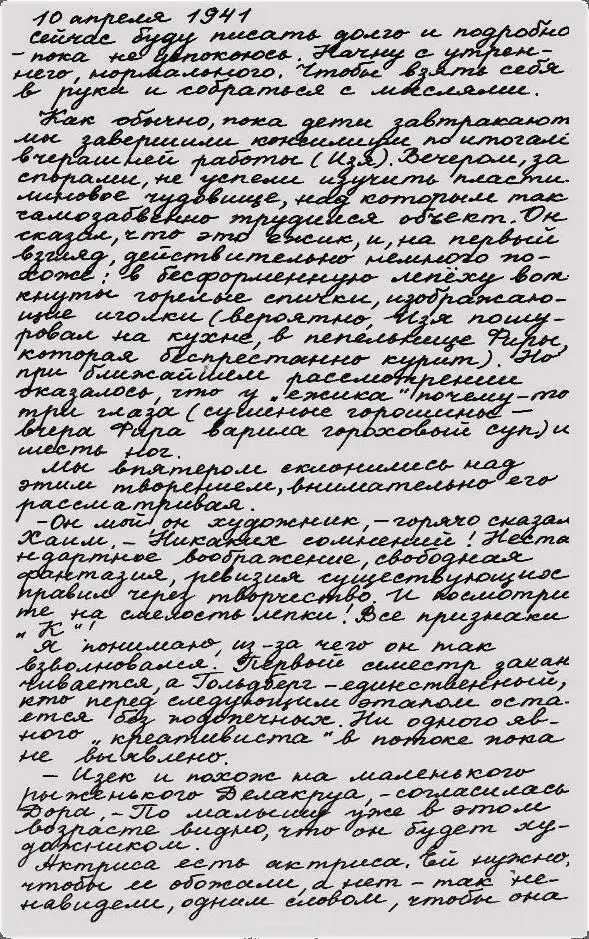 10 апреля 1941
Сейчас буду писать долго и подробно
– пока не успокоюсь. Начну с утрен-
него, нормального. Чтобы взять себя
в руки и собраться с мыслями.
Как обычно, пока дети завтракают
мы завершили консилиум по итогам
вчерашней работы (Изя). Вечером, за
спорами, не успели изучить пласти
линовое чудовище, над которым так
самозабвенно трудился объект. Он
сказал, что это ёжик, и, на первый
взгляд, действительно немного по-
хоже: в бесформенную лепёху вот
кнуты горелые спички, изображаю-
щие иголки (вероятно, Изя пошу-
ровал на кухне, в пепельнице Фиры,
которая беспрестанно курит). Но
при ближайшем рассмотрении
оказалось, что у „ежика“ почему-то
три глаза (сушеные горошины –
вчера Фира варила гороховый суп) и
шесть ног.
Мы впятером склонились над
этим творением, внимательно его
рассматривая.
– Он мой он художник, – горячо сказал
Хаим. – Никаких сомнений! Неста
ндартное воображение, свободная
фантазия, ревизия существующих
правил через творчество. И посмотри
те на смелость лепки! Все признаки
„К“!
Я понимаю, из-за чего он так
взволновался. Первый семестр закан
чивается, а Гольдберг – единственный,
кто перед следующим этапом оста-
ется без подопечных. Ни одного яв-
ного „креативиста“ в потоке пока
не выявлено.
– Изек и похож на маленького
рыженького Делакруа, – согласилась
Дора. – По малышу уже в этом
возрасте видно, что он будет ху-
дожником.
Актриса есть актриса. Ей нужно,
чтобы ее обожали, а нет – так не-
навидели, одним словом, чтобы она